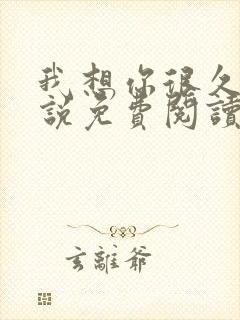 我想你很久
說免費閱讀
玄離爺